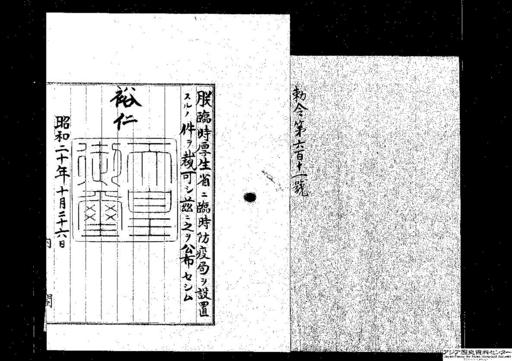 勅令第六百十一號
朕臨時厚生省ニ臨時防疫局ヲ設置
スルノ件ヲ裁可シ茲ニ之ヲ公布セシム
裕仁
天皇御璽
昭和二十年十月二十六日
内閣
アジア歴史資料センター